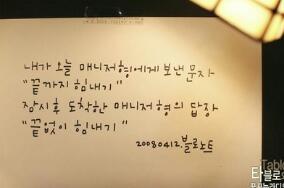 내가 오늘 매니저형에게 보낸 문자
"끝까지 힘내기"
잠시후 도착한 매니저형의 답장
"끝없이 힘내기"
20080412. 블로노트
Tablo
타블로와